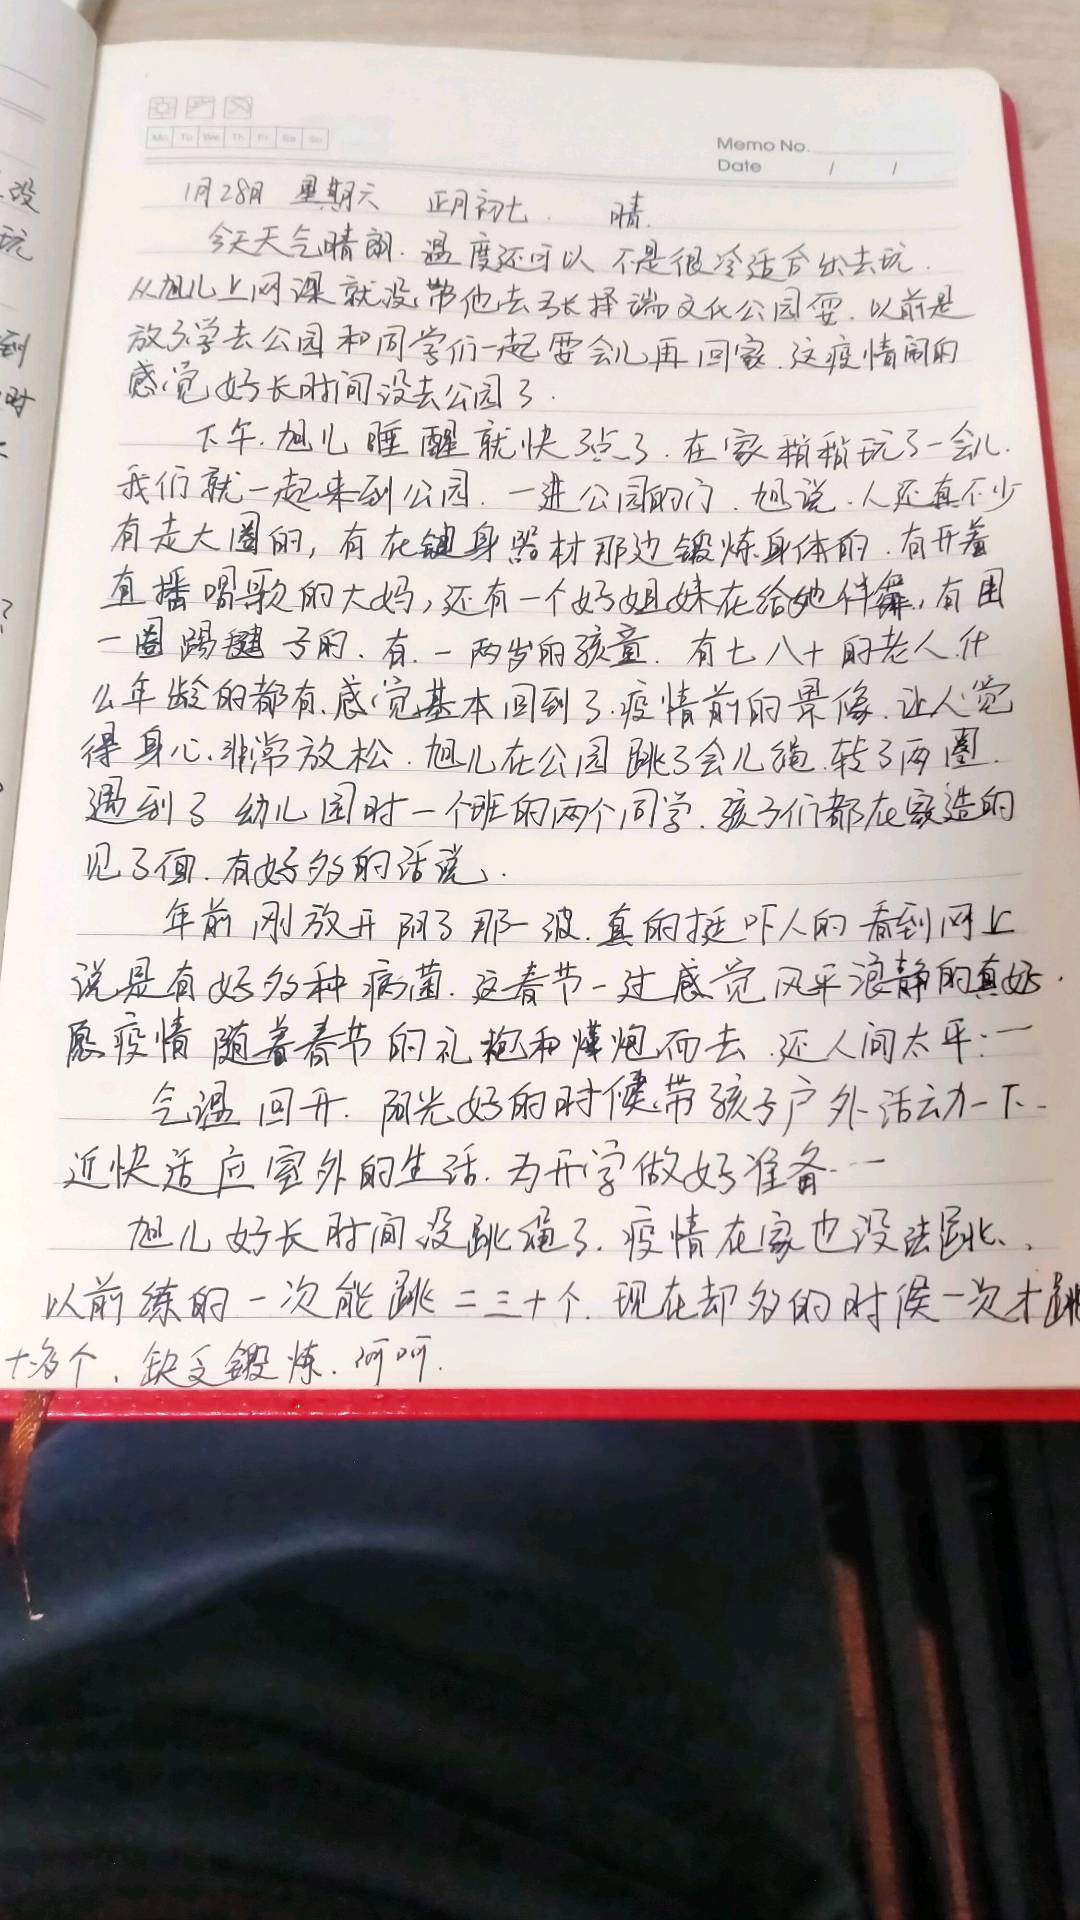 Mo Tu We Th Fr Sa Su
Memo No.
Date / /
1月28日 星期六 正月初七. 晴.
今天天气晴朗.温度还可以 不是很冷适合出去玩.
从旭儿上网课就没带他去张择端文化公园耍.以前是
放了学去公园和同学们一起耍会儿再回家.这疫情闹的
感觉好长时间没去公园了.
下午.旭儿睡醒就快3点了.在家稍稍玩了一会儿.
我们就一起来到公园.一进公园的门.旭说.人还真不少
有走大圈的,有在健身器材那边锻炼身体的.有开着
直播唱歌的大妈,还有一个好姐妹在给她伴舞,有围
一圈踢毽子的.有.一两岁的孩童.有七八十的老人什
么年龄的都有.感觉基本回到了.疫情前的景像.让人觉
得身心.非常放松.旭儿在公园跳了会儿绳.转了两圈.
遇到了幼儿园时一个班的两个同学.孩子们都在家造的
见了面.有好多的话说.
年前刚放开阳了那一波.真的挺吓人的看到网上
说是有好多种病菌.这春节一过感觉风平浪静的真好.
愿疫情随着春节的礼炮和爆炮而去.还人间太平:一
气温回升.阳光好的时候.带孩子户外活动一下..
近快适应室外的生活.为开学做好准备...一
旭儿好长时间没跳绳了.疫情在家也没法跳..
以前练的一次能跳二三十个.现在却多的时侯一次才跳
十多个.缺乏锻炼.呵呵.
没
玩
到
时